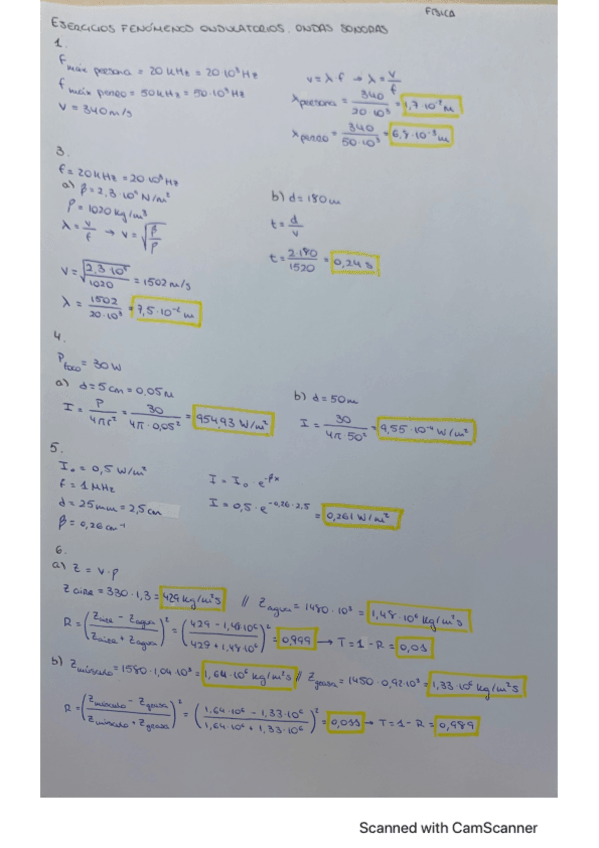 FÍSICA
EJERCICIOS FENÓMENOS ONDULATORIOS. ONDAS SONORAS
1.
f máx persona = 20 kHz = 20·10³ Hz
f máx perro = 50 kHz = 50·10³ Hz
v = 340 m/s
v = λ·f → λ = v/f
λ persona = 340/20·10³ = 1,7·10⁻² m
λ perro = 340/50·10³ = 6,8·10⁻³ m
3.
f = 20 kHz = 20·10³ Hz
a) β = 2,3·10⁹ N/m²
ρ = 1020 kg/m³
λ = v/f → v = √(β/ρ)
v = √(2,3·10⁹/1020) = 1502 m/s
λ = 1502/20·10³ = 7,5·10⁻² m
b) d = 180 m
t = d/v
t = 2·180/1520 = 0,24 s
4.
P foco = 30 W
a) d = 5 cm = 0,05 m
I = P/4πr² = 30/4π·0,05² = 954,93 W/m²
b) d = 50 m
I = 30/4π·50² = 9,55·10⁻⁴ W/m²
5.
I₀ = 0,5 W/m²
f = 1 MHz
d = 25 mm = 2,5 cm
β = 0,26 cm⁻¹
I = I₀·e^-βx
I = 0,5·e^-0,26·2,5 = 0,261 W/m²
6.
a) Z = v·ρ
Z aire = 330·1,3 = 429 kg/m²s // Z agua = 1480·10³ = 1,48·10⁶ kg/m²s
R = (Z aire - Z agua / Z aire + Z agua)² = (429 - 1,48·10⁶ / 429 + 1,48·10⁶)² = 0,999 → T = 1 - R = 0,01
b) Z músculo = 1580·1,04·10³ = 1,64·10⁶ kg/m²s // Z grasa = 1450·0,92·10³ = 1,33·10⁶ kg/m²s
R = (Z músculo - Z grasa / Z músculo + Z grasa)² = (1,64·10⁶ - 1,33·10⁶ / 1,64·10⁶ + 1,33·10⁶)² = 0,011 → T = 1 - R = 0,989
Scanned with CamScanner